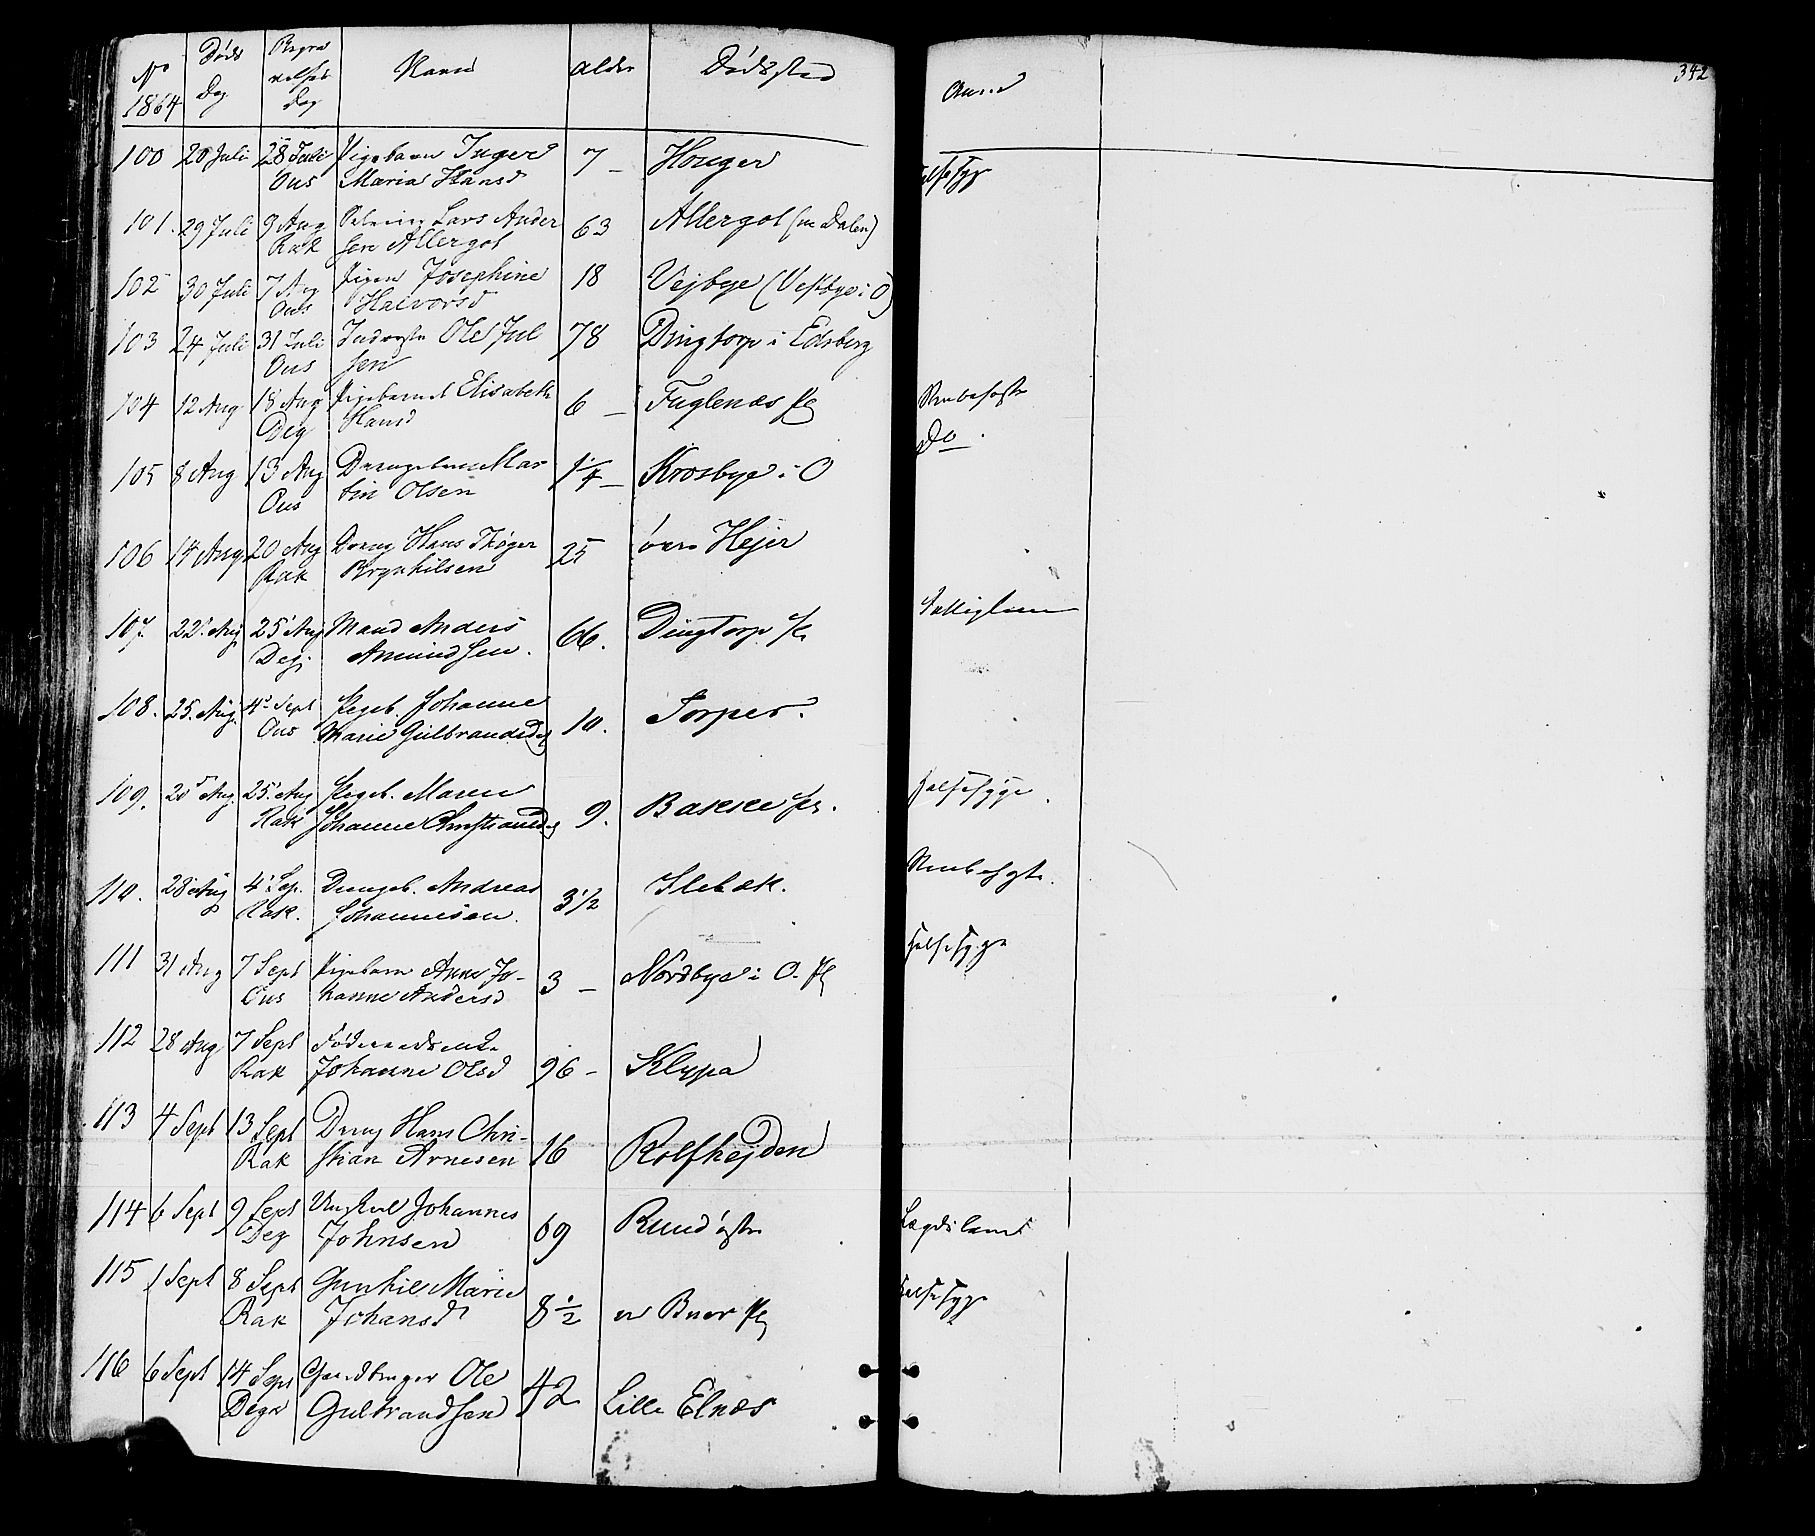 No
1864
Døds
Dag
Begra
velses
Dag
Navn
Alder
Dødssted
Anm
342
100 20 Juli 28 Juli Pigebarn Inger 7 - Houger Halsesyge
Ous Maria Hansd
101. 29 Juli 9 Aug Lars Ander 63 Allergot (ne Dalen)
Rak sen Allergot
102 30 Juli 7 Aug Pigen Josephine 18 Vejbye (Vestbye i O)
Ous Halvorsd
103 24 Juli 31 Juli Inderste Ole Jul 78 Dingtorp i Edsberg
Ous sen
104 12 Aug 18 Aug Pigebarnet Elisabeth 6 - Fuglenæs Pl
Deg Hansd
105 8 Aug 13 Aug Drengebarn Mar 1 1/4 - Krosbye i O Do.
Ous tin Olsen
106 14 Aug 20 Aug Dreng Hans Thøger 25 øvre Hejer
Rak Brynhilsen
107. 22 Aug 25 Aug Mand Anders 66. Dingtorp Pl Fattiglem
Deg. Amundsen.
108. 25. Aug. 4 Sept Pigeb. Johanne 10. Torper.
Ous Marie Gulbrandsd
109. 20 Aug. 25. Aug Pigeb. Maren 9. Bakke Pl. Halsesyge.
Rak Johanne Christiansd
110. 28 Aug 4 Sep. Drengeb. Andreas 3 1/2 Slebæk.
Rak. Johannesen.
111 31 Aug 7 Sept Pigebarn Anne Jo- 3 - Nordbye i O. Pl Halsesyge
Ous hanne Andersd
112 28 Aug 7 Sept Føderaadsenke
Rak Johanne Olsd 96 - Klypa
113 4 Sept 13 Sept Dreng Hans Chri- 16 Rolfhejden
Rak stian Arnesen
114 6 Sept 9 Sept Ungkarl Johannes 69 Rund østre Lægdslem
Deg Johnsen
115 1 Sept 8 Sept Gunhil Marie 8 1/2 Buer Pl Halsesyge
Rak Johansd
116 6 Sept 14 Sept Gaardbruger Ole 42 Lille Elnæs
Degn Gulbrandsen